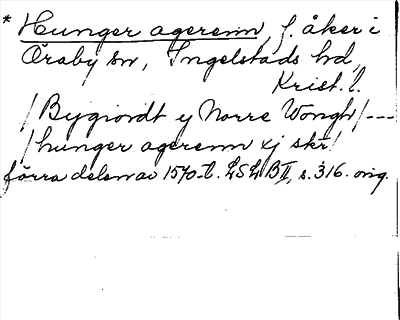 * Hunger agerenn, f. åker i
Öraby sn, Ingelstads hd,
Krist. l.
/Bygiordt y Norre Wongh/---
/hunger agerenn xj skr/
förra delen av 1570-t. LSLB II, s. 316. orig.